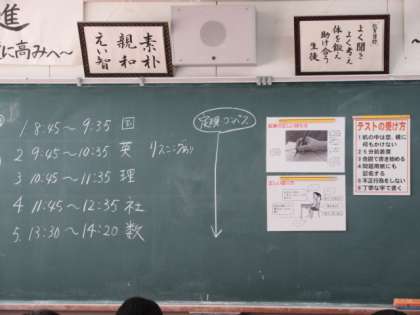 進
に高みへ〜
素朴
親和
えい智
よく聞き
よく考え
体を鍛え
助け合う
生徒
1 8:45〜9:35 国
2 9:45〜10:35 英 リスニングあり
3 10:45〜11:35 理
4 11:45〜12:35 社
5. 13:30〜14:20 数
定規・コンパス
テストの受け方
1 机の中は空、横に
何もかけない
2 5分前着席
3 合図で書き始める
4 問題用紙にも
記名する
5 不正行為をしない
6 丁寧な字で書く